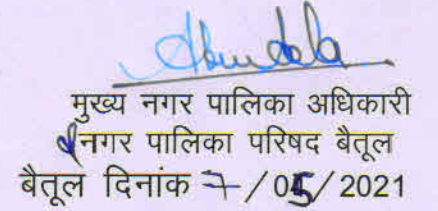 मुख्य नगर पालिका अधिकारी
नगर पालिका परिषद बैतूल
बैतूल दिनांक 7 / 05 / 2021